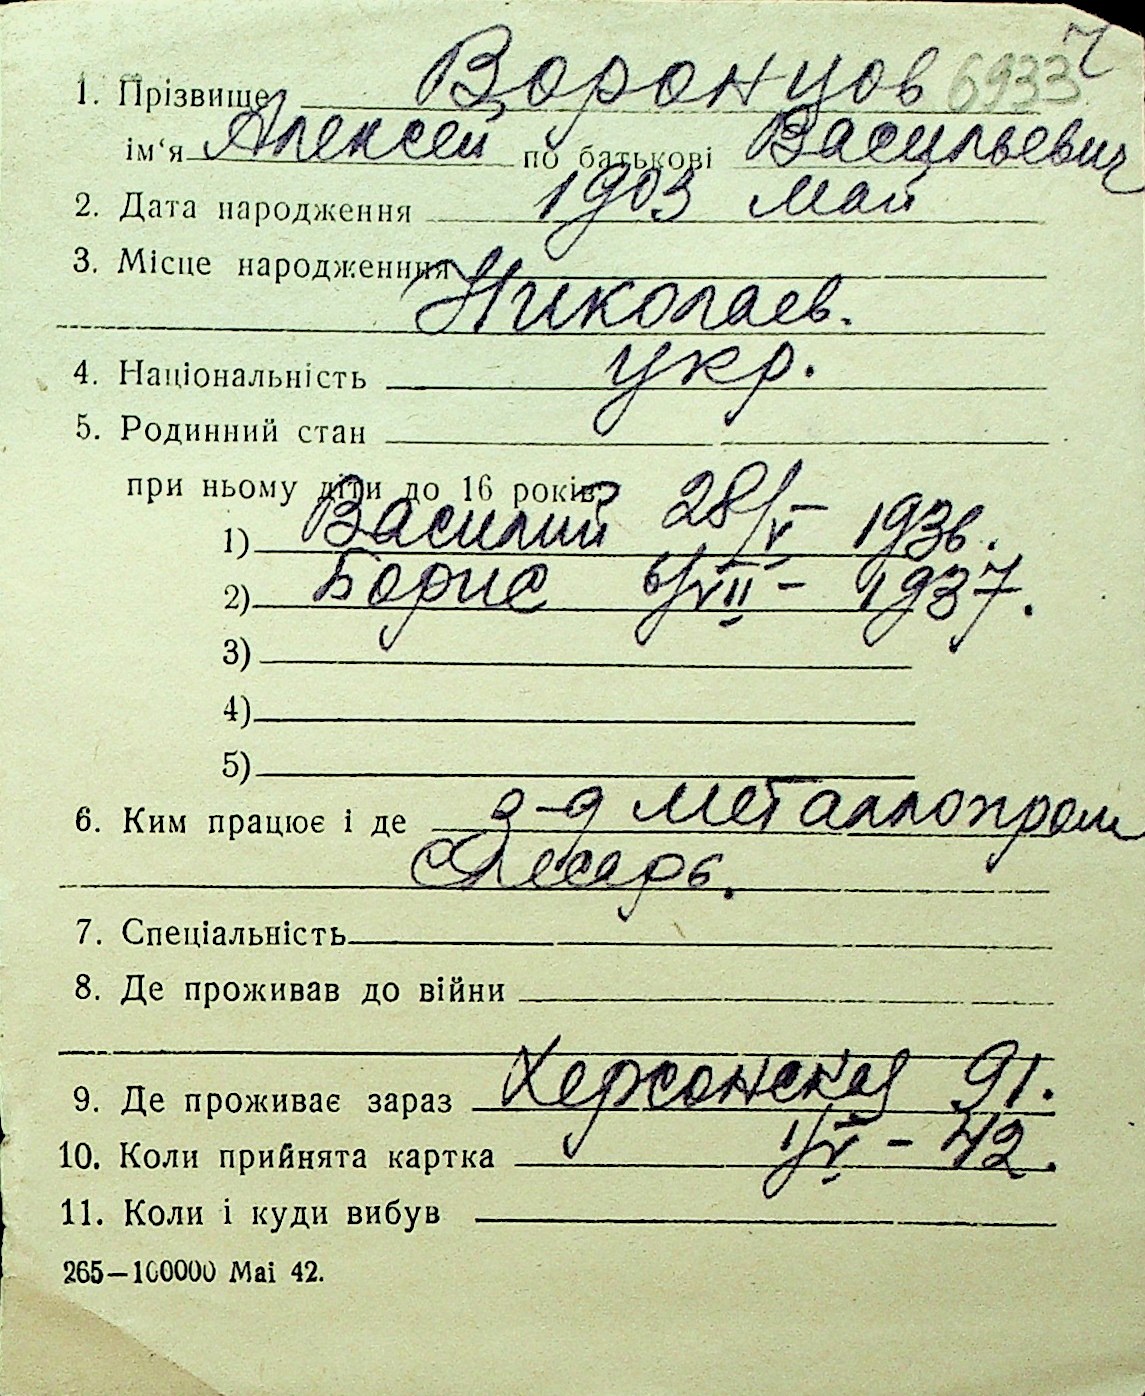 ч
1. Прізвище Воронцов 6933
ім‘я Алексей по батькові Васильевич
2. Дата народження 1903 май
3. Місце народженння
Николаев.
4. Національність укр.
5. Родинний стан
при ньому діти до 16 років:
1) Василий 28/V – 1936.
2) Борис 6/VII – 1937.
3)
4)
5)
6. Ким працює і де з-д Металлопром
Слесарь.
7. Спеціальність
8. Де проживав до війни
9. Де проживає зараз Херсонская 91.
10. Коли прийнята картка 1/V – 42.
11. Коли і куди вибув
265–100000 Mai 42.